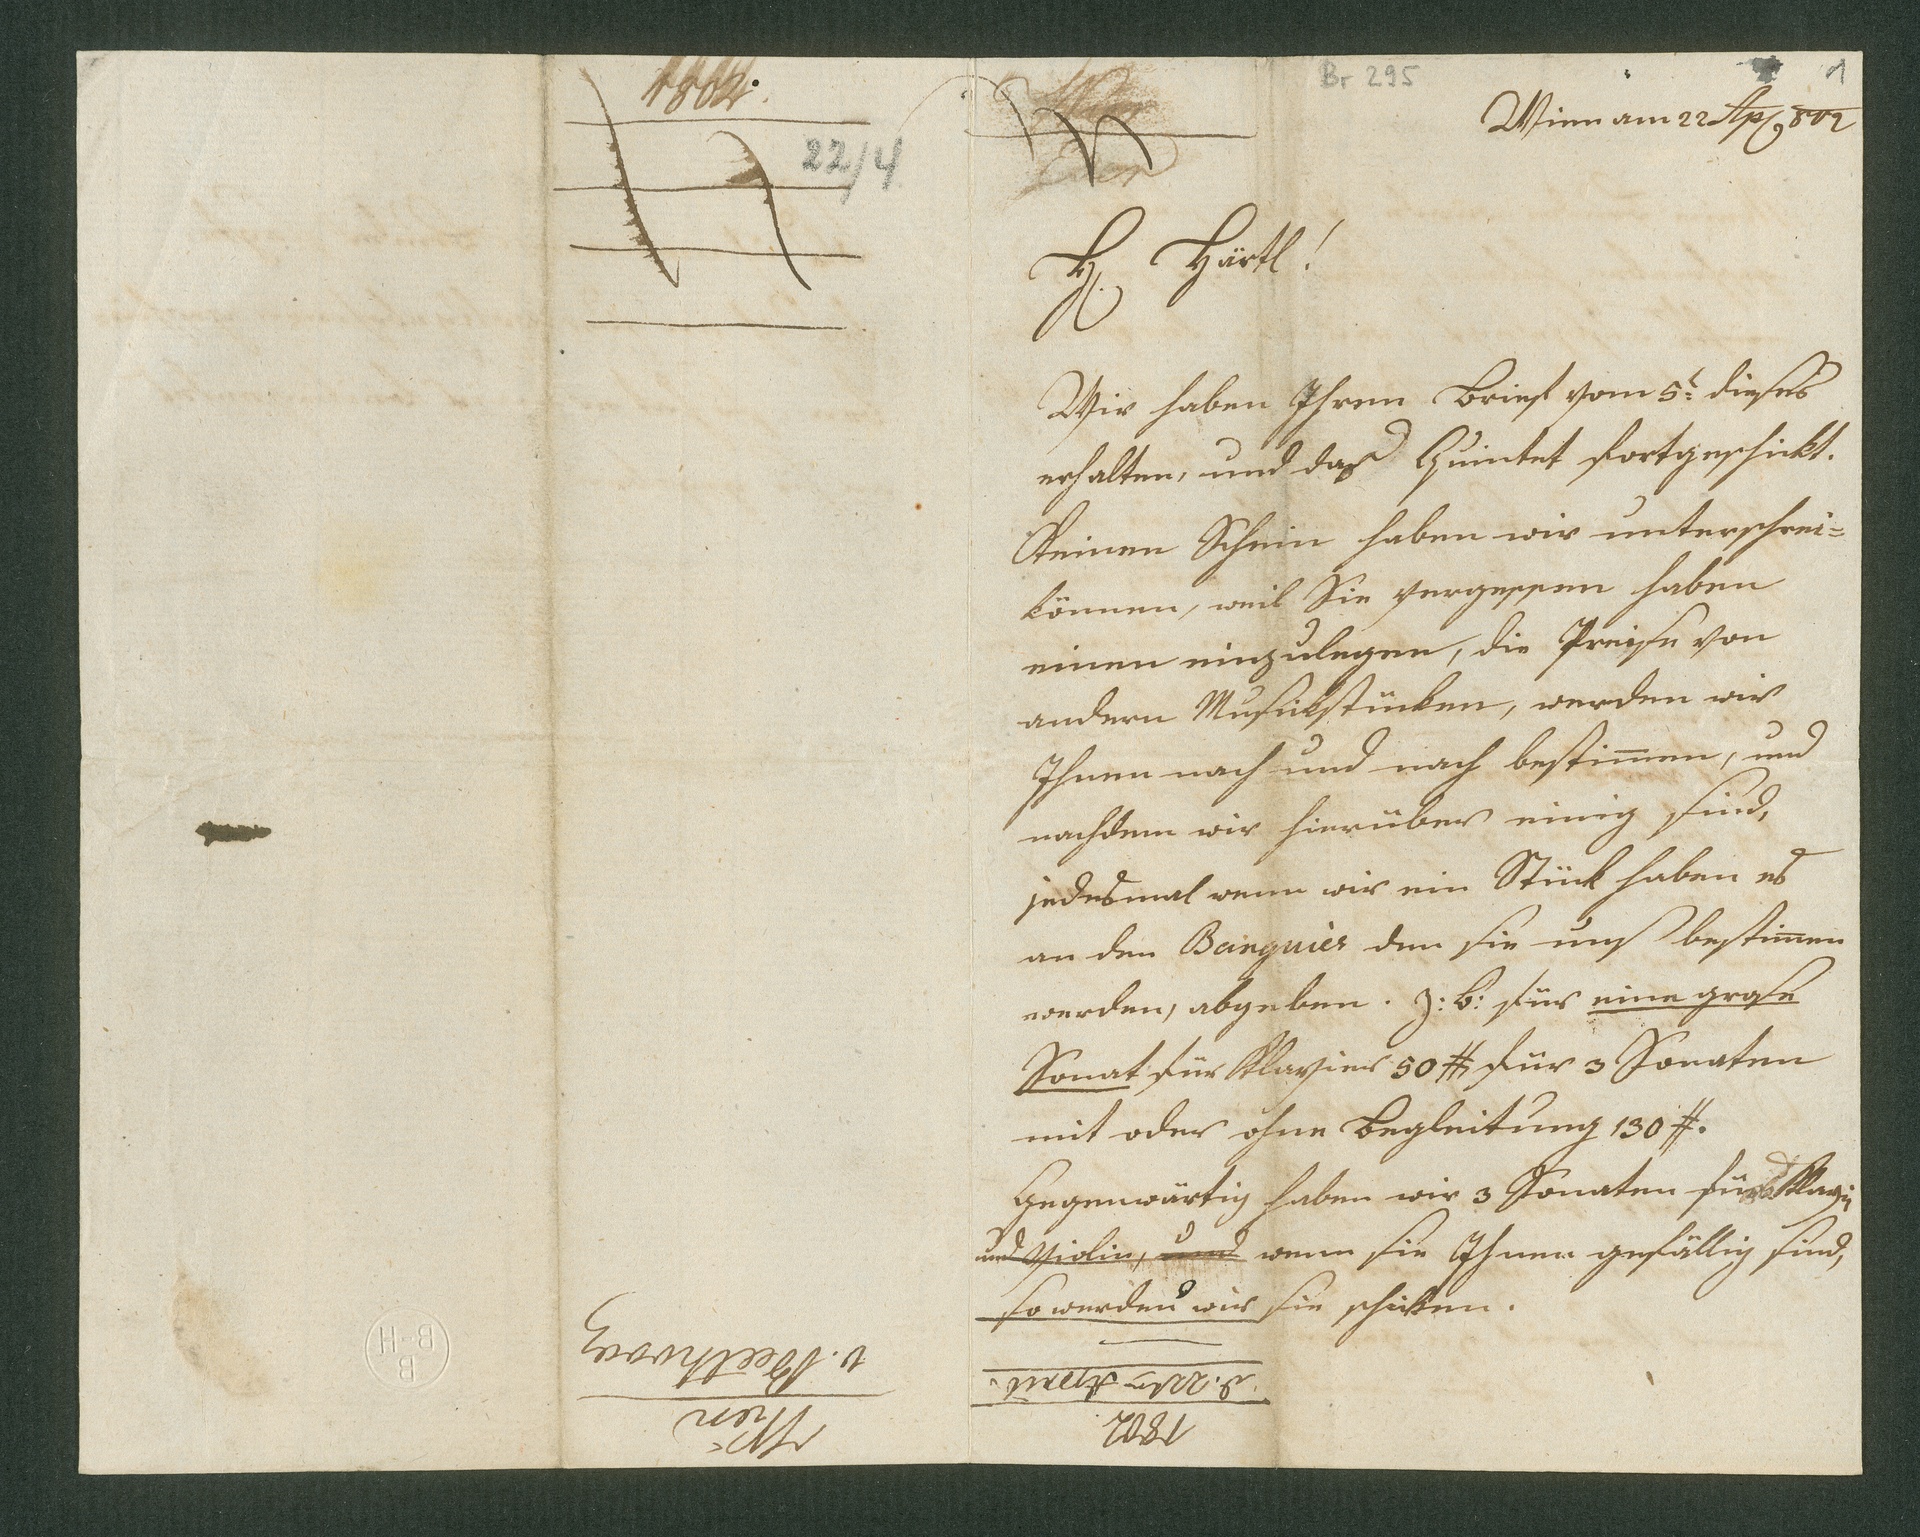 1802.
22/4
Br 295
1
Wien am 22 Ap 802
H. Härtl!
Wir haben Ihren Brief vom 5t dieses
erhalten, und das Quintet fortgeschickt.
Keinen Schein haben wir unterschrei=
können, weil Sie vergessen haben
einen einzulegen, die Preise von
andern Musickstücken, werden wir
Ihnen nach und nach bestim̅en, und
nachdem wir hierüber einig sind,
jedesmal wenn wir ein Stück haben es
an den Banquier den sie uns bestim̅en
werden, abgeben. z: b: für eine grose
Sonat für Klavier 50 #, für 3 Sonaten
mit oder ohne Begleitung 130 #.
Gegenwärtig haben wir 3 Sonaten für's Klavi
und Violin, und wenn sie Ihnen gefällig sind,
so werden wir sie schicken.
1802
d. 22 April
Wien
v. Beethoven
B-H
B